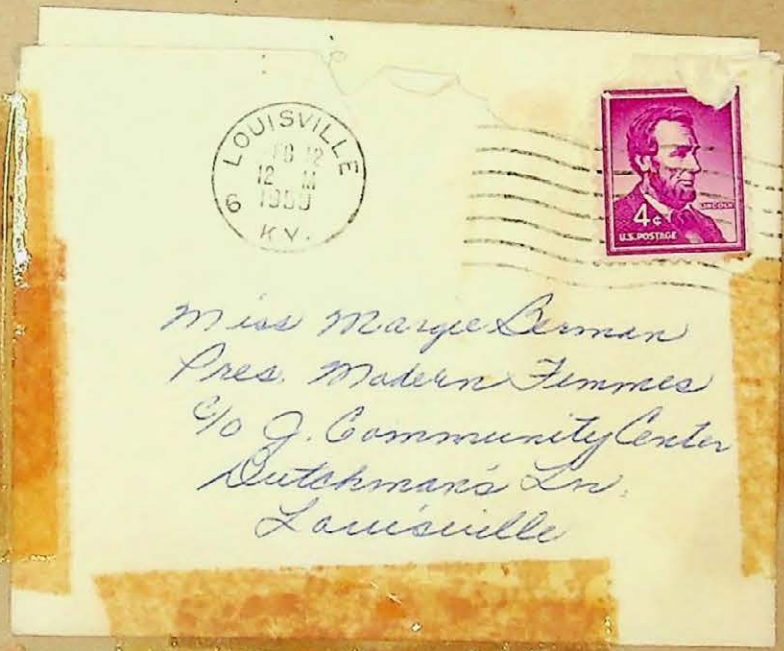 LOUISVILLE
12
12 M
6
KY.
LINCOLN
4¢
U.S. POSTAGE
Miss Margie Berman
Pres. Modern Femmes
c/o J. Community Center
Dutchman's Ln.
Louisville